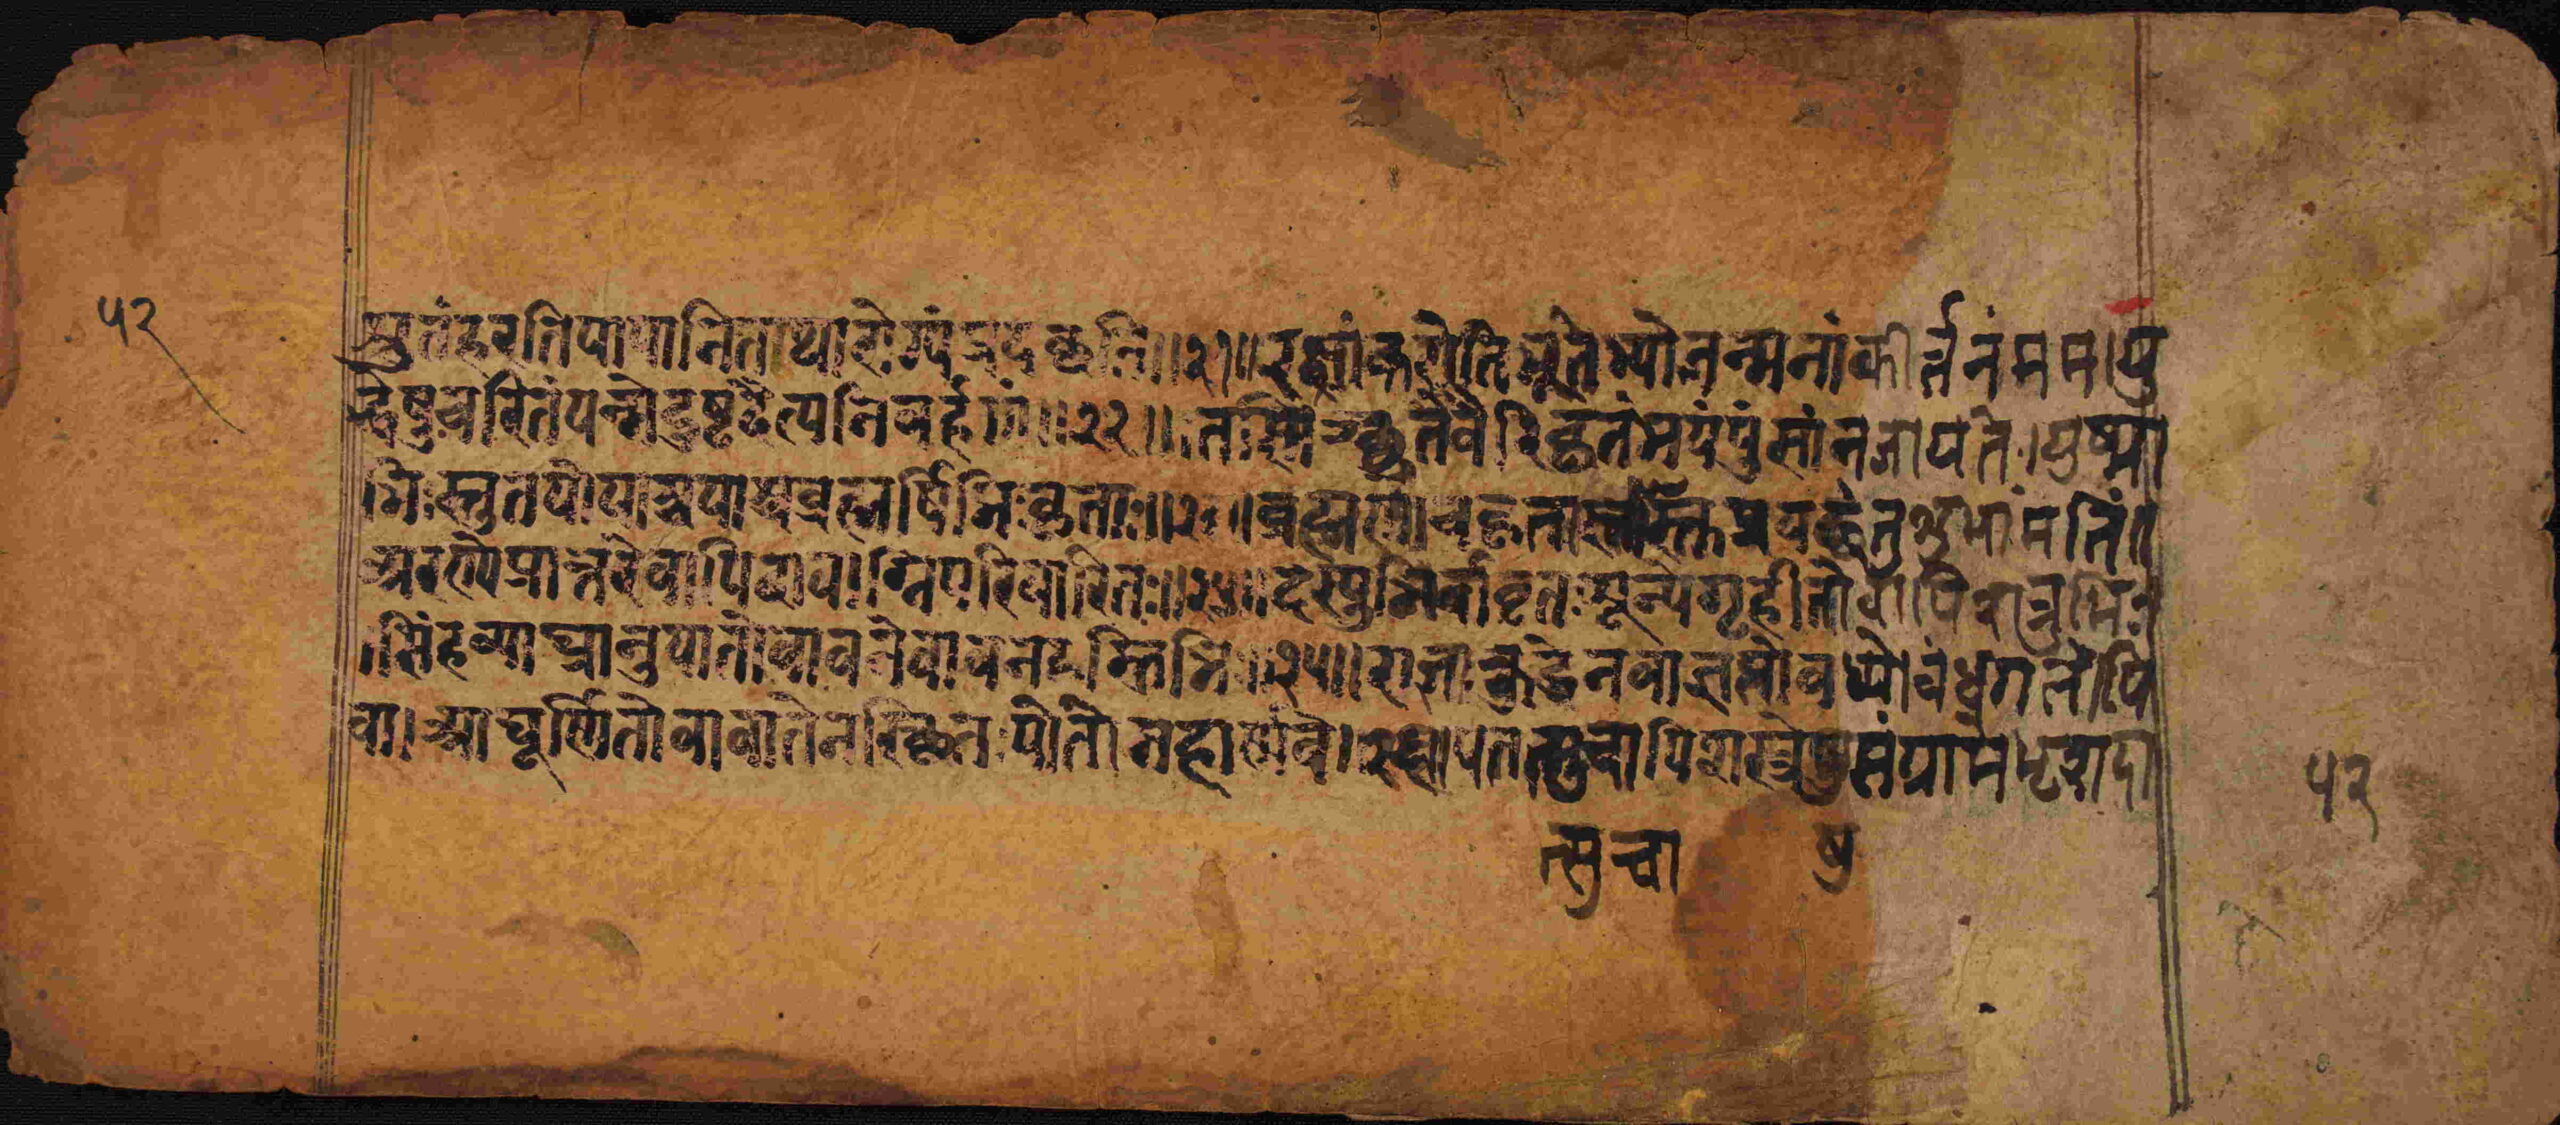 ५२
श्रुतं हरति पापानि तथारोग्यं प्रयच्छति ॥ २१ ॥ रक्षां करोति भूतेभ्यो जन्मनां कीर्त्तनं मम । यु
द्धेषु चरितं यन्मे दुष्टदैत्यनिबर्हणं ॥ २२ ॥ तस्मिञ्छ्रुते वैरिकृतं भयं पुंसां न जायते । युष्मा
भिः स्तुतयो याश्च याश्च ब्रह्मर्षिभिः कृताः ॥ २३ ॥ ब्रह्मणा च कृतास्तास्तु प्रयच्छन्तु शुभां मतिं ।
अरण्ये प्रान्तरे वापि दावाग्निपरिवारितः ॥ २४ ॥ दस्युभिर्वा वृतः शून्ये गृहीतो वापि शत्रुभिः
। सिंहव्याघ्रानुयातो वा वने वा वनहस्तिभिः ॥ २५ ॥ राज्ञा क्रुद्धेन वाज्ञप्तो वध्यो बंधगतोपि
वा । आघूर्णितो वा वातेन स्थितः पोते महार्णवे । २६ ॥ पतत्सु चापि शस्त्रेषु संग्रामे भृशदा
५२
त्सु चा षु